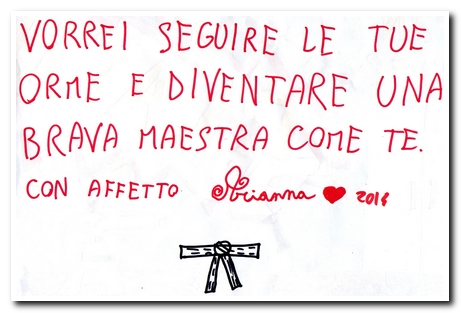 VORREI SEGUIRE LE TUE
ORME E DIVENTARE UNA
BRAVA MAESTRA COME TE.
CON AFFETTO Arianna ❤ 2016